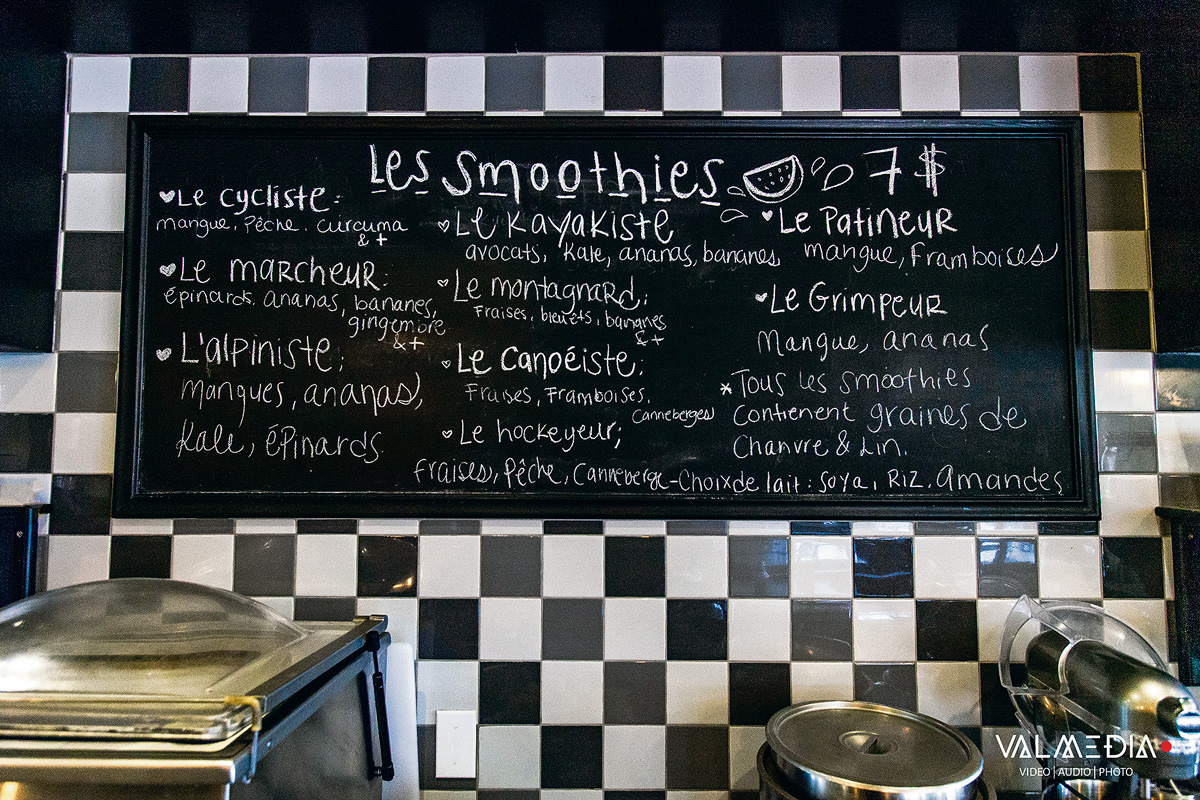 Les Smoothies 7$
Le cycliste:
mangue, Pêche, curcuma
& +
Le marcheur:
épinards, ananas, bananes,
gingembre
& +
L'alpiniste:
mangues, ananas,
Kale, épinards
Le Kayakiste
avocats, Kale, ananas, bananes
Le montagnard:
Fraises, bleuets, bananes
& +
Le canoéiste:
Fraises, Framboises,
Canneberges
Le hockeyeur;
fraises, Pêche, Canneberge
Le Patineur
mangue, Framboises
Le Grimpeur
Mangue, ananas
*Tous les smoothies
Contienent graines de
Chanvre & Lin.
-Choix de lait: Soya, Riz, Amandes
VALMEDIA
VIDEO|AUDIO|PHOTO